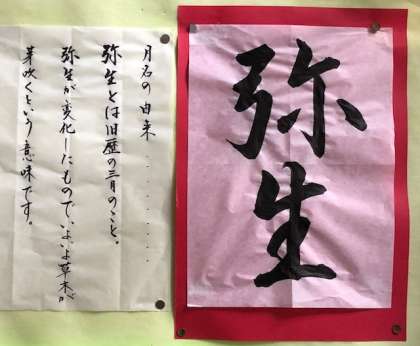 弥生
月名の由来........
弥生とは旧歴の三月のこと。
弥生が変化したもので、いよいよ草木が
芽吹くという意味です。